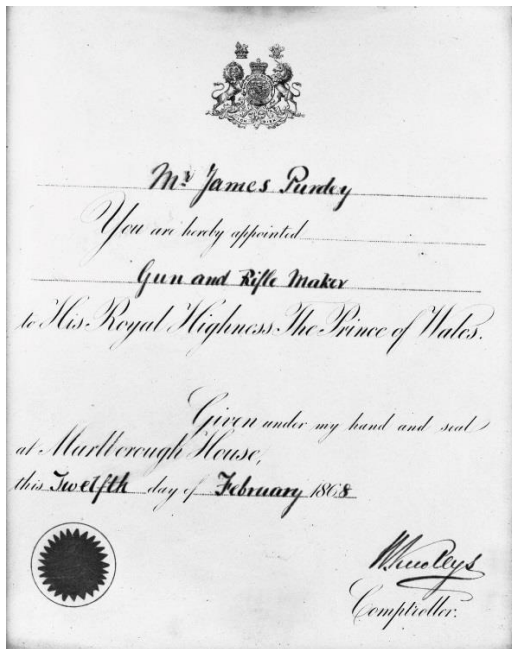 Mr James Purdey
You are hereby appointed
Gun and Rifle Maker
to His Royal Highness The Prince of Wales.
Given under my hand and seal
at Marlborough House,
this Twelfth day of February 1868
Comptroller.